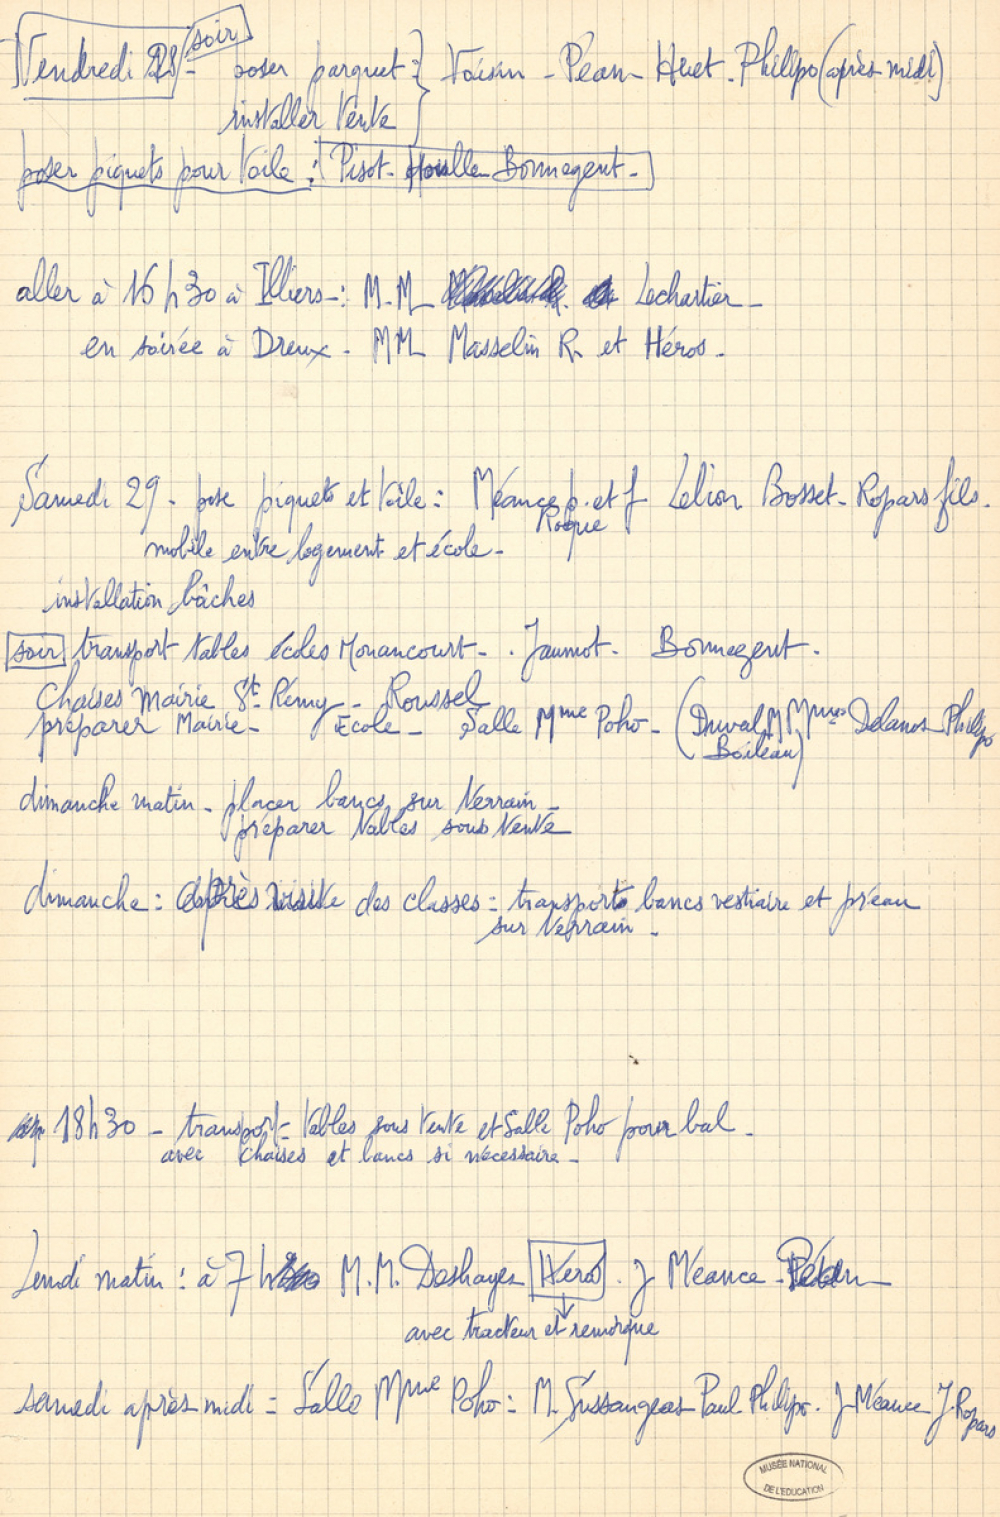 Vendredi 28 - soir poser parquet : } Voisin - Péan - Huet - Philipo (après midi)
installer tente
poser piquets pour toile : Pisot - Bonnegent -
aller à 16 h 30 à Illiers - : M. M. Lechartier -
en soirée à Dreux - MM Masselin R. et Héros -
Samedi 29 - pose piquets et toile : Méance p. et f Lelion Bosset - Ropars fils.
Roque
mobile entre logement et école -
installation bâches
soir transport tables écoles Monancourt - . Jaumot - Bonnegent -
Chaises Mairie St Rémy - Roussel
préparer Mairie - Ecole - Salle Mme Poho - (Duval M Mmes Delanos Philipo
Boileau)
dimanche matin - placer bancs sur terrain -
préparer tables sous tente
dimanche : après visite des classes : transport bancs vestiaire et préau
sur terrain -
18 h 30 - transport tables sous tente et Salle Poho pour bal -
avec chaises et bancs si nécessaire -
Lundi matin : à 7 h M. M. Deshayes Héros . J Méance -
avec tracteur et remorque
samedi après midi : Salle Mme Poho : M. Sussangeas Paul Philipo - J Méance J. Ropars
MUSÉE NATIONAL
DE L'EDUCATION